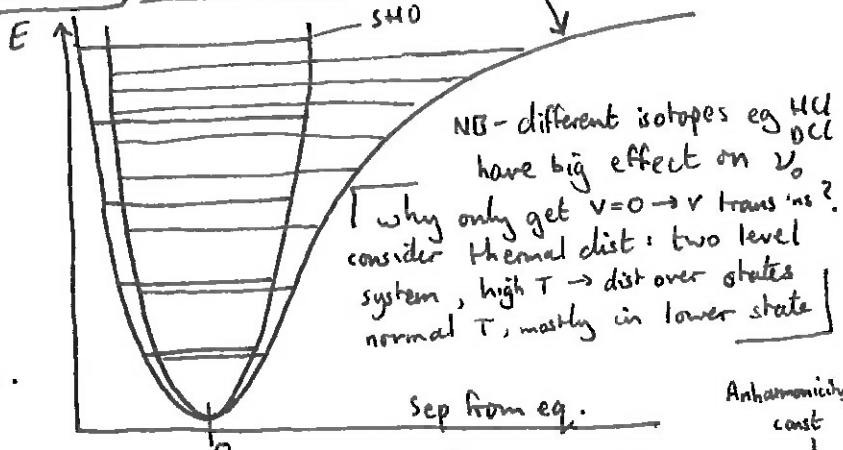 E
SHO
NB - different isotopes eg HCl
DCl
have big effect on ν₀
why only get v=0 → v trans'ns?
consider thermal dist: two level
system, high T → dist over states
normal T, mostly in lower state
Sep from eq.
Anharmonicity
const
0